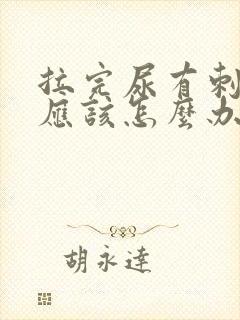 拉完尿有刺
應該怎麼办
胡永達